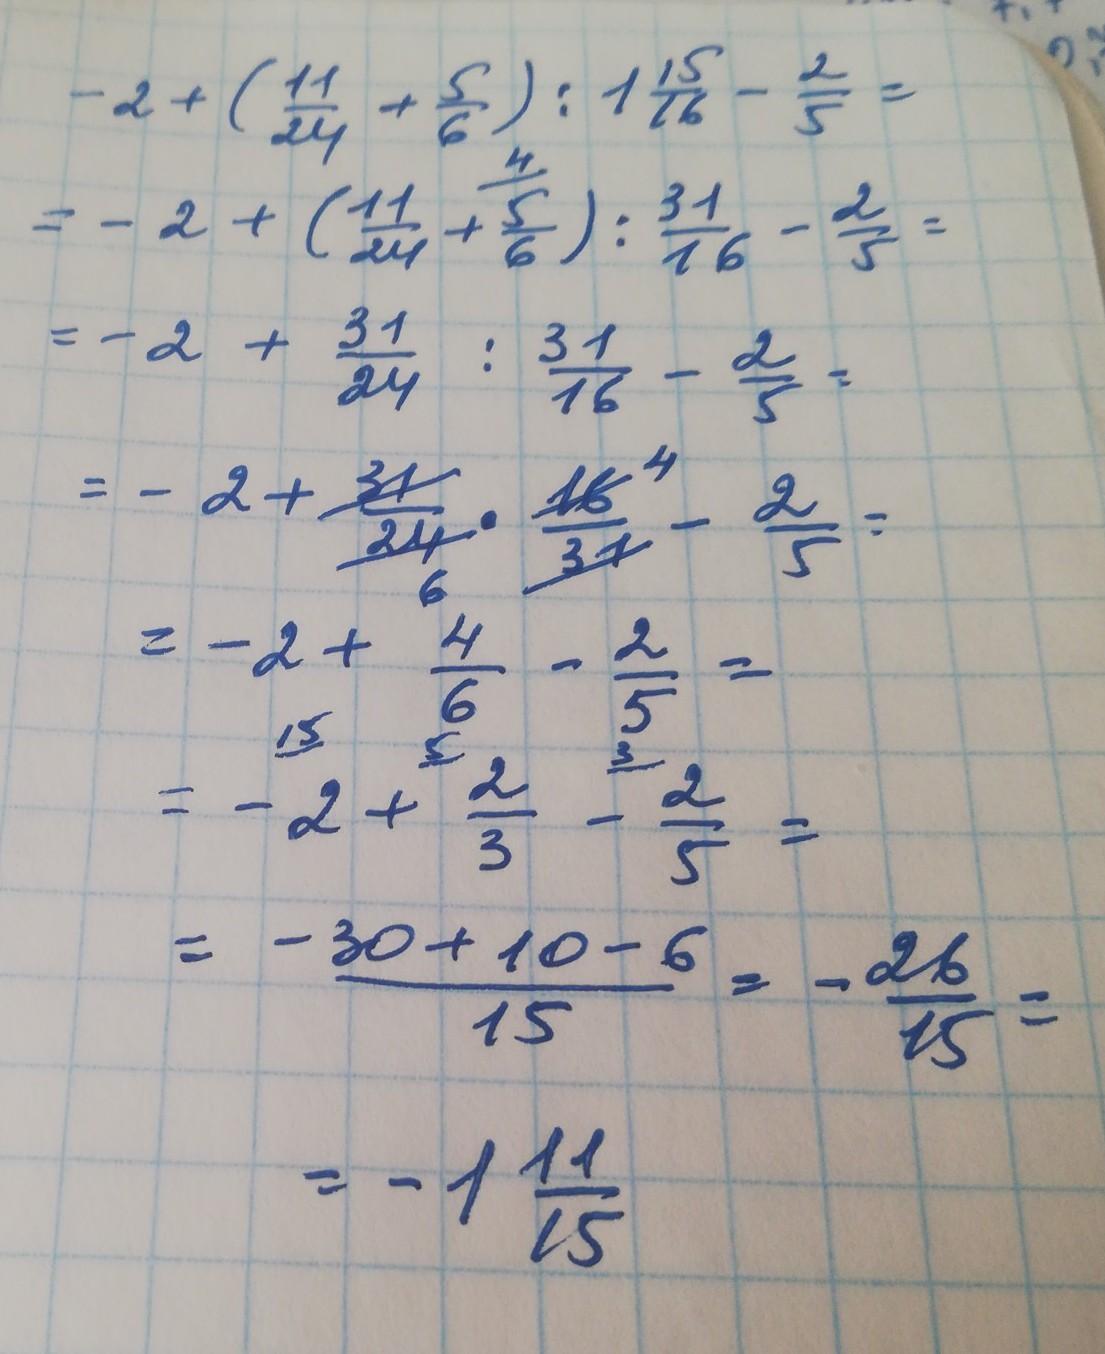 -2 + (11/24 + 5/6) : 1 15/16 - 2/5 =
4
= -2 + (11/24 + 5/6) : 31/16 - 2/5 =
= -2 + 31/24 : 31/16 - 2/5 =
= -2 + 31/24 · 16/31 - 2/5 =
4
6
= -2 + 4/6 - 2/5 =
15 5 3
= -2 + 2/3 - 2/5 =
= -30 + 10 - 6/15 = -26/15 =
= -1 11/15